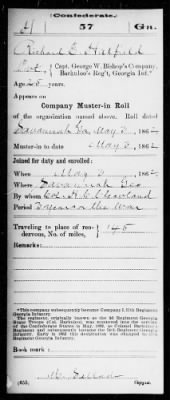 Confederate.
H 57 Gn.
Richard E. Hatfield
Pvt, Capt. George W. Bishop's Company,
Barkuloo's Reg't, Georgia Inf.*
Age 25 years.
Appears on
Company Muster-in Roll
of the organization named above. Roll dated
Savannah Ga, May 3, 1862
Muster-in to date May 3, 1862
Joined for duty and enrolled:
When May 3, 186
Where Savannah Geo
By whom
Period 3 years or the War
Traveling to place of ren-
dezvous, No. of miles, 145
Remarks:
*This company subsequently became Company I, 57th Regiment
Georgia Infantry.
Book mark:
(655) Copyist.